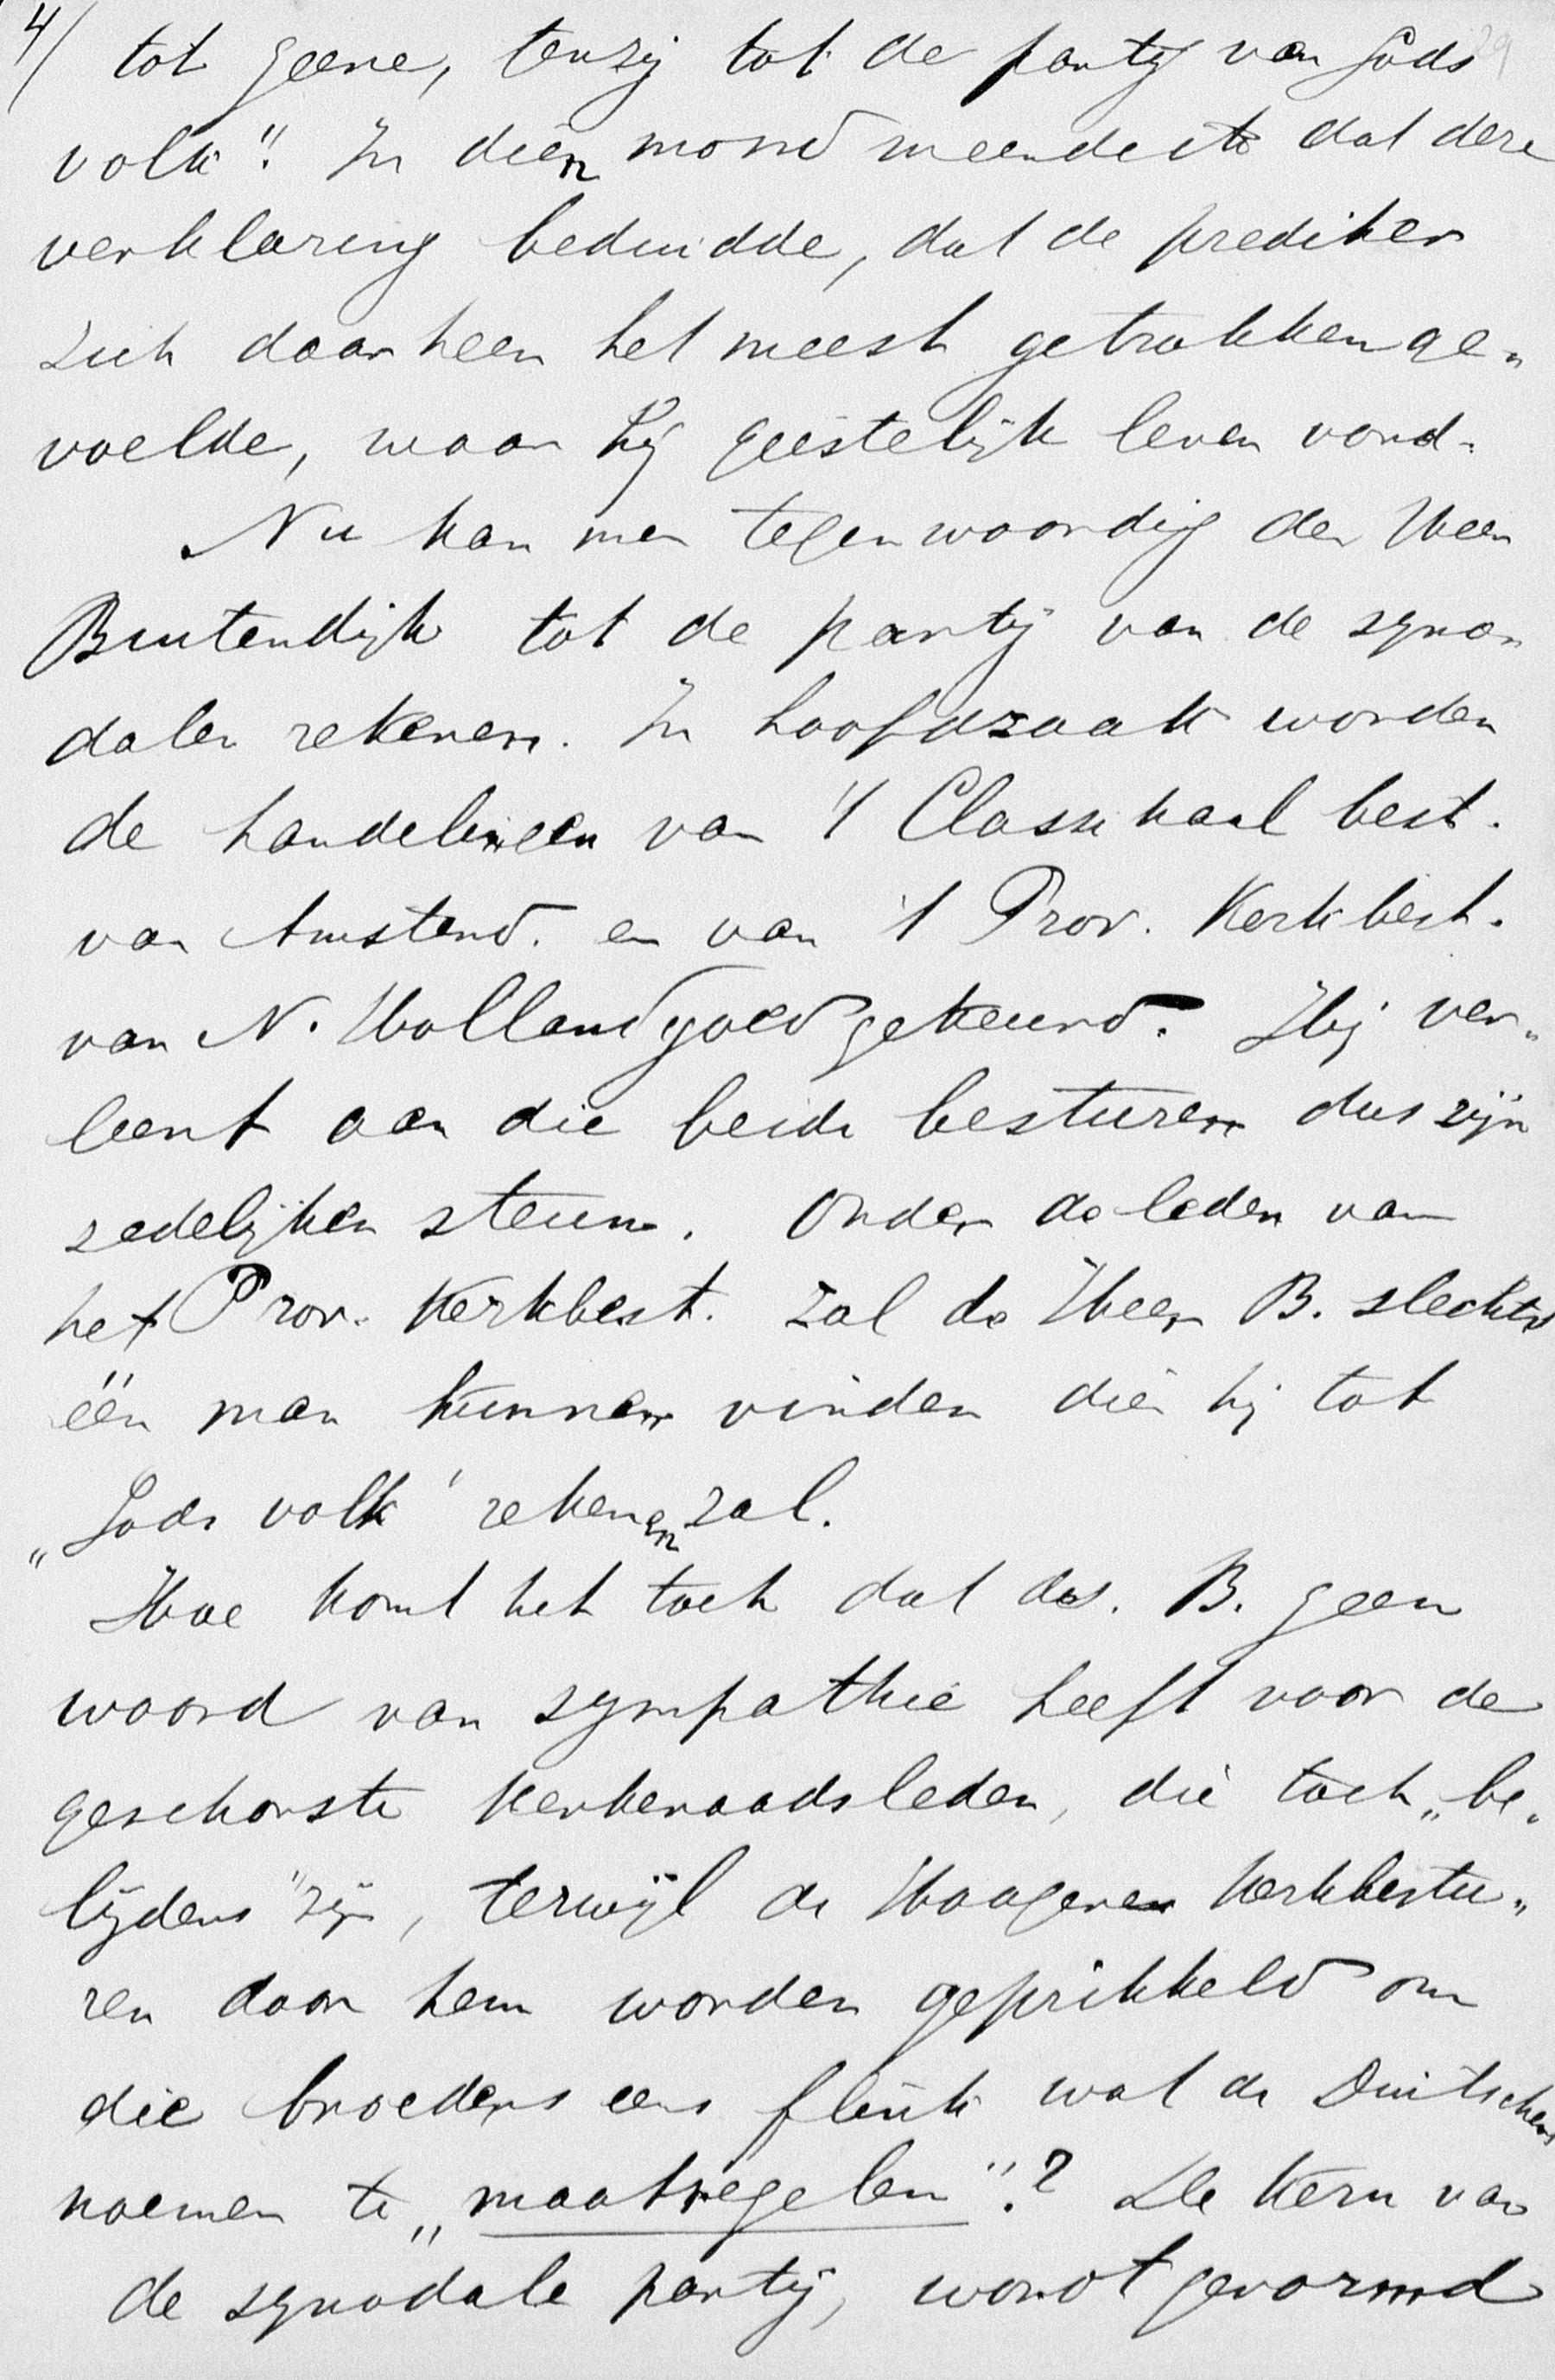 4/ tot geene, tenzij tot de partij van Gods 29
volk". In dien mond meende ik dat deze
verklaring beduidde, dat de prediker
zich daarheen het meest getrokken ge-
voelde, waar hij geestelijk leven vond.
Nu kan men tegenwoordig den Heer
Buitendijk tot de partij van de syno-
dalen rekenen. In hoofdzaak worden
de handelingen van 't Classikaal best.
van Amsterd. en van 't Prov. Kerkbest.
van N. Holland goedgekeurd. Hij ver-
leent aan die beide besturen dus zijn
zedelijken steun. Onder de leden van
het Prov. Kerkbest. zal de Heer B. slechts
één man kunnen vinden dien hij tot
„Gods volk" rekenen zal.
Hoe komt het toch dat ds. B. geen
woord van sympathie heeft voor de
geschorste kerkeraadsleden, die toch „be-
lijders" zijn, terwijl de Hoogere Kerkbestu-
ren door hem worden geprikkeld om
die broeders eens flink wat de Duitschers
noemen te „maatregelen"? De kern van
de synodale partij, wordt gevormd